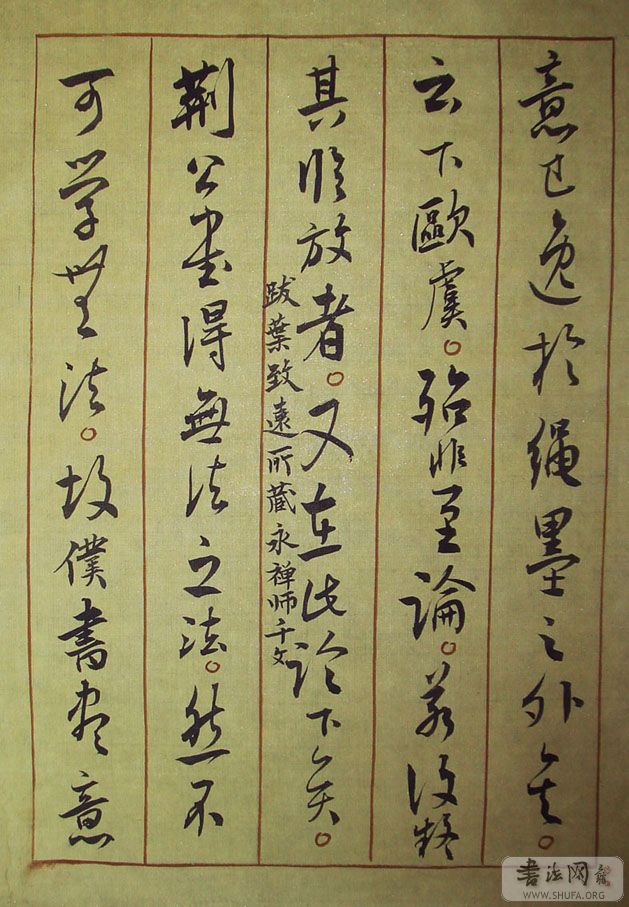 意已逸於繩墨之外矣。
云下歐虞。殆非至論。若復疑
其臨放者。又在此論下矣。
跋葉致遠所藏永禅师千文
荆公書得無法之法。然不
可学無法。故僕書尽意
書法网
WWW.SHUFA.ORG